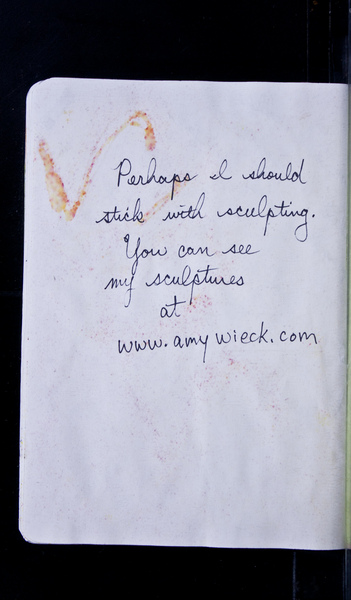 Perhaps I should
stick with sculpting.
You can see
my sculptures
at
www.amywieck.com